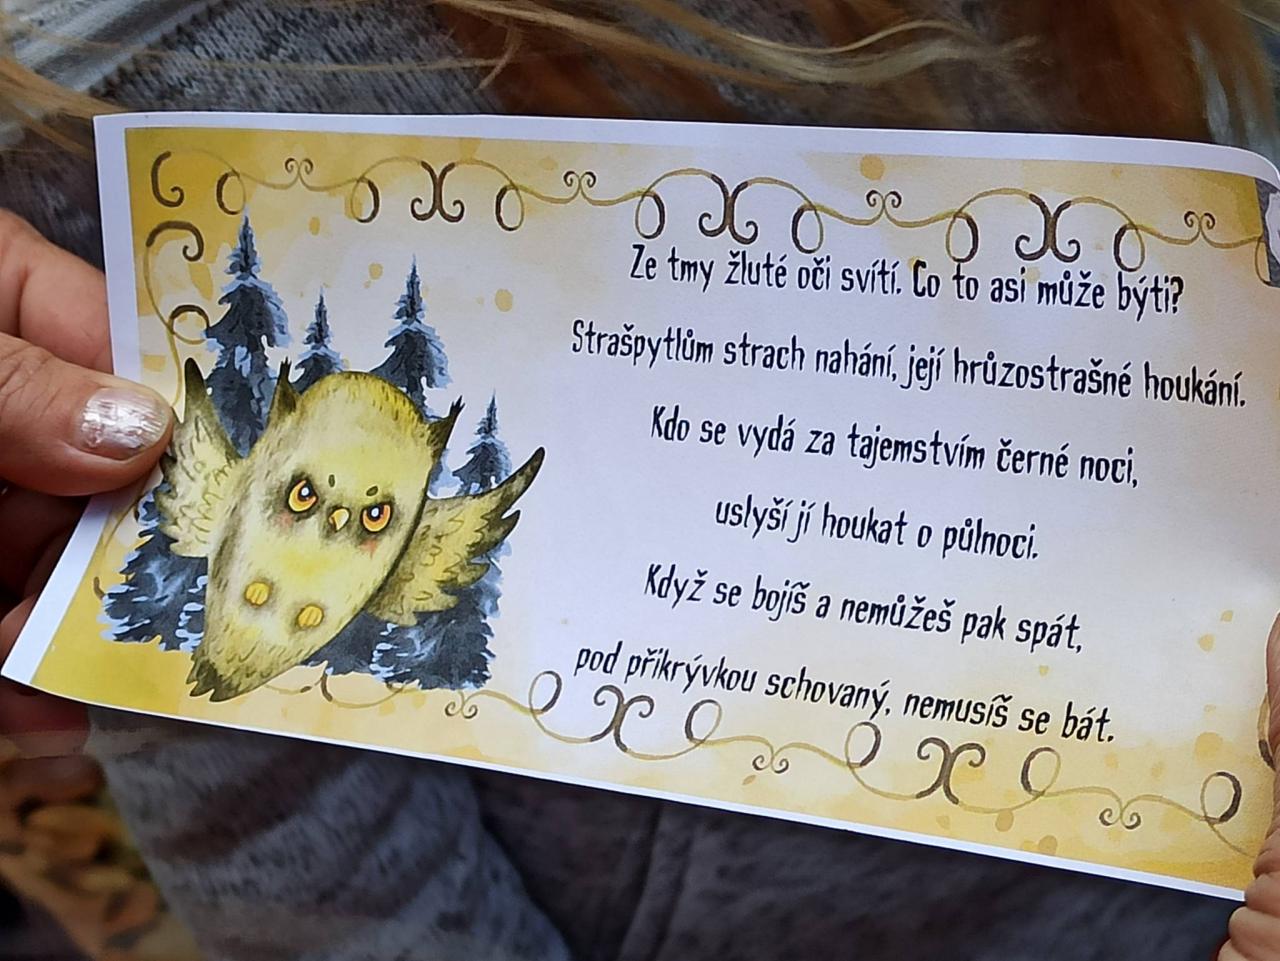 Ze tmy žluté oči svítí. Co to asi může býti?
Strašpytlům strach nahání, její hrůzostrašné houkání.
Kdo se vydá za tajemstvím černé noci,
uslyší jí houkat o půlnoci.
Když se bojíš a nemůžeš pak spát,
pod přikrývkou schovaný, nemusíš se bát.